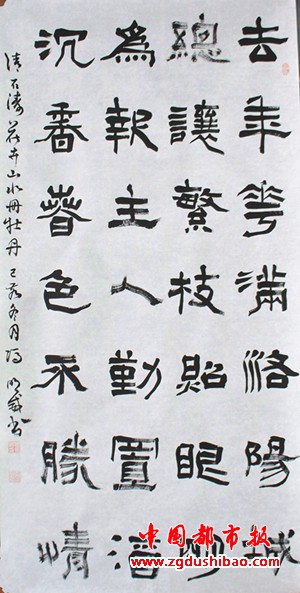 去年花滿洛陽城
總讓繁枝眼明
為報主人勤置酒
沉香春色不勝情
清石濤花卉山水冊牡丹 冬月 書
中国都市报
www.zgdushibao.com